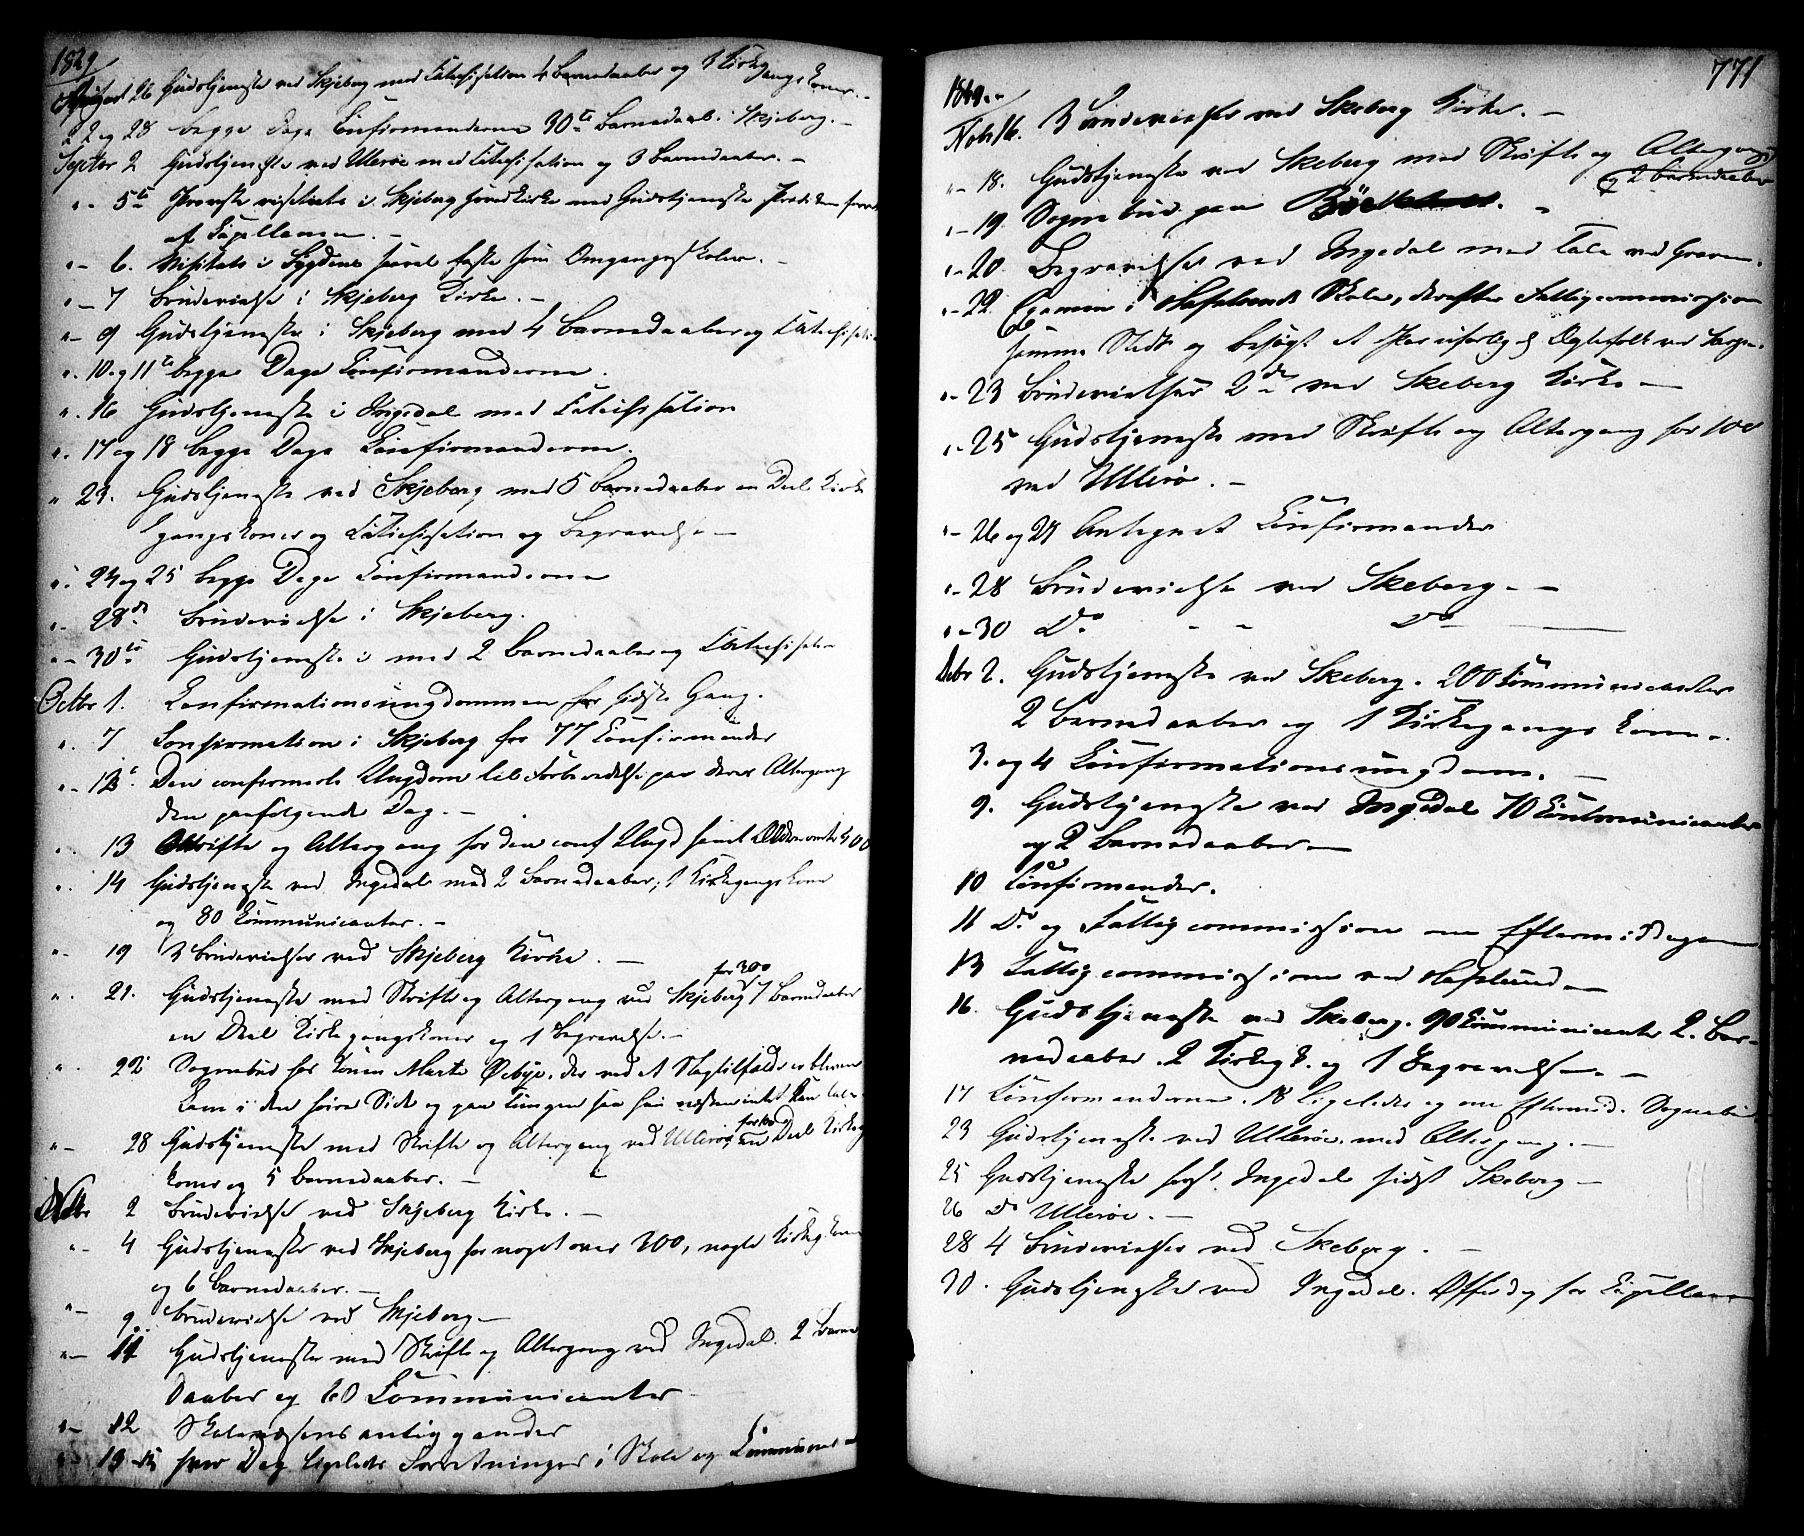 1849
August 26 Gudstjeneste ved Skjeberg med Catechisation 4 Barnedaaber og 1 Kirkegangskone. –
" 27 og 28 begge Dage Confirmanderne 30te Barnedaab i Skjeberg. –
Septbr 2 Gudstjeneste ved Ullerøe med Catechisation og 3 Barnedaaber. –
" – 5te Provste visitats i Skjeberg Hovedkirke med Gudstjeneste Prædiken
af Capellanen. –
" – 6. Visitats i Bygdens saavel faste som Omgangsskoler. –
" – 7 Brudevielse i Skjeberg Kirke. –
" – 9 Gudstjeneste i Skjeberg med 4 Barnedaaber og Catechisation
" . 10. og 11te begge Dage Confirmanderne.
" . 16 Gudstjeneste i Ingedal med Catechisation
" . 17 og 18 begge Dage Confirmanderne.
" 23. Gudstjeneste ved Skjeberg med 5 Barnedaaber en Deel Kirke
gangskoner og Catechisation og Begravelse –
" . 24 og 25 begge Dage Confirmanderne
" – 28de Brudevielse i Skjeberg.
" – 30te Gudstjeneste i med 2 Barnedaaber og Catechisation
Octbr 1. Confirmationsungdommen for sidste Gang.
" . 7 Confirmation i Skjeberg for 77 Confirmander
" – 12 Den confirmerte Ungdom til Forberedelse paa deres Altergang
den paafølgende Dag. –
" . 13 Skrifte og Altergang for den conf Ungd samt 400
" . 14 Gudstjeneste ved Ingedal med 2 Barnedaaber, 1 Kirkegangskone
og 80 Communicanter. –
" . 19 3 Brudevielser ved Skjeberg Kirke. –
for 300
" . 21. Gudstjeneste med Skrifte og Altergang ved Skjeberg 7 Barnedaaber
en Deel Kirkegangskoner og 1 Begravelse. –
" . 22 Sognebud for Konen Marte Øebye, der ved et Slagtilfælde er bleven
Lam i den høire Side og paa Tungen saa hun næsten intet kan tale
" – 28 Gudstjeneste med Skrifte og Altergang ved Ullerøe en Deel Kirkeg
koner og 5 Barnedaaber. –
Novbr 2 Brudevielse ved Skjeberg Kirke. –
" – 4 Gudstjeneste ved Skjeberg for noget over 300, nogle Kirkeg. koner
og 6 Barnedaaber. –
" – 9. Brudevielse ved Skjeberg –
" – 11 Gudstjeneste med Skrifte og Altergang ved Ingedal. 2 Barne
Daaber og 60 Communicanter
" – 12 Skolevæsens anliggender
" – 13 hver Dag ligeledes Forretninger i Skole og
771
1849. –
Novb 16. 3 Brudevielser ved Skeberg Kirke. –
" – 18. Gudstjeneste ved Skeberg med Skrifte og Altergang
og 2 Barnedaaber
" – 19 Sognebud paa
" – 20 Begravelse ved Ingedal med Tale ved Graven.
" – 22. Examen i Hafslunds Skole, derefter Fattigcommission
samme Sted og besøgt et Par uforlig. Ægtefolk ved
" – 23 Brudevielser 2de ved Skeberg Kirke –
" – 25 Gudstjeneste med Skrifte og Altergang for 100
ved Ullerø. –
" – 26 og 27 Antegnet Confirmander
" – 28 Brudevielse ved Skeberg. –
" – 30 Do – – Do –
Debr 2. Gudstjeneste ved Skeberg. 200 Communicanter
2 Barnedaaber og 1 Kirkegangskone.
3. og 4 Confirmationsungdom. –
9. Gudstjeneste ved Ingedal 70 Communicanter
og 2 Barnedaaber –
10 Confirmander.
11 Do og Fattigcommission om Eftermiddagen
13 Fattigcommission ved Hafslund –
16. Gudstjeneste ved Skeberg. 90 Communicanter 2. Bar-
nedaaber. 2 Kirkegk. og 1 Begravelse. –
17 Confirmanderne. 18 Ligeledes og om Eftermid. Sognebu
23 Gudstjeneste ved Ullerøe med Altergang. –
25 Gudstjeneste først Ingedal sidst Skeberg –
26 Do Ullerøe. –
28 4 Brudevielser ved Skeberg. –
30. Gudstjeneste ved Ingedal. Offerdag for Capellanen